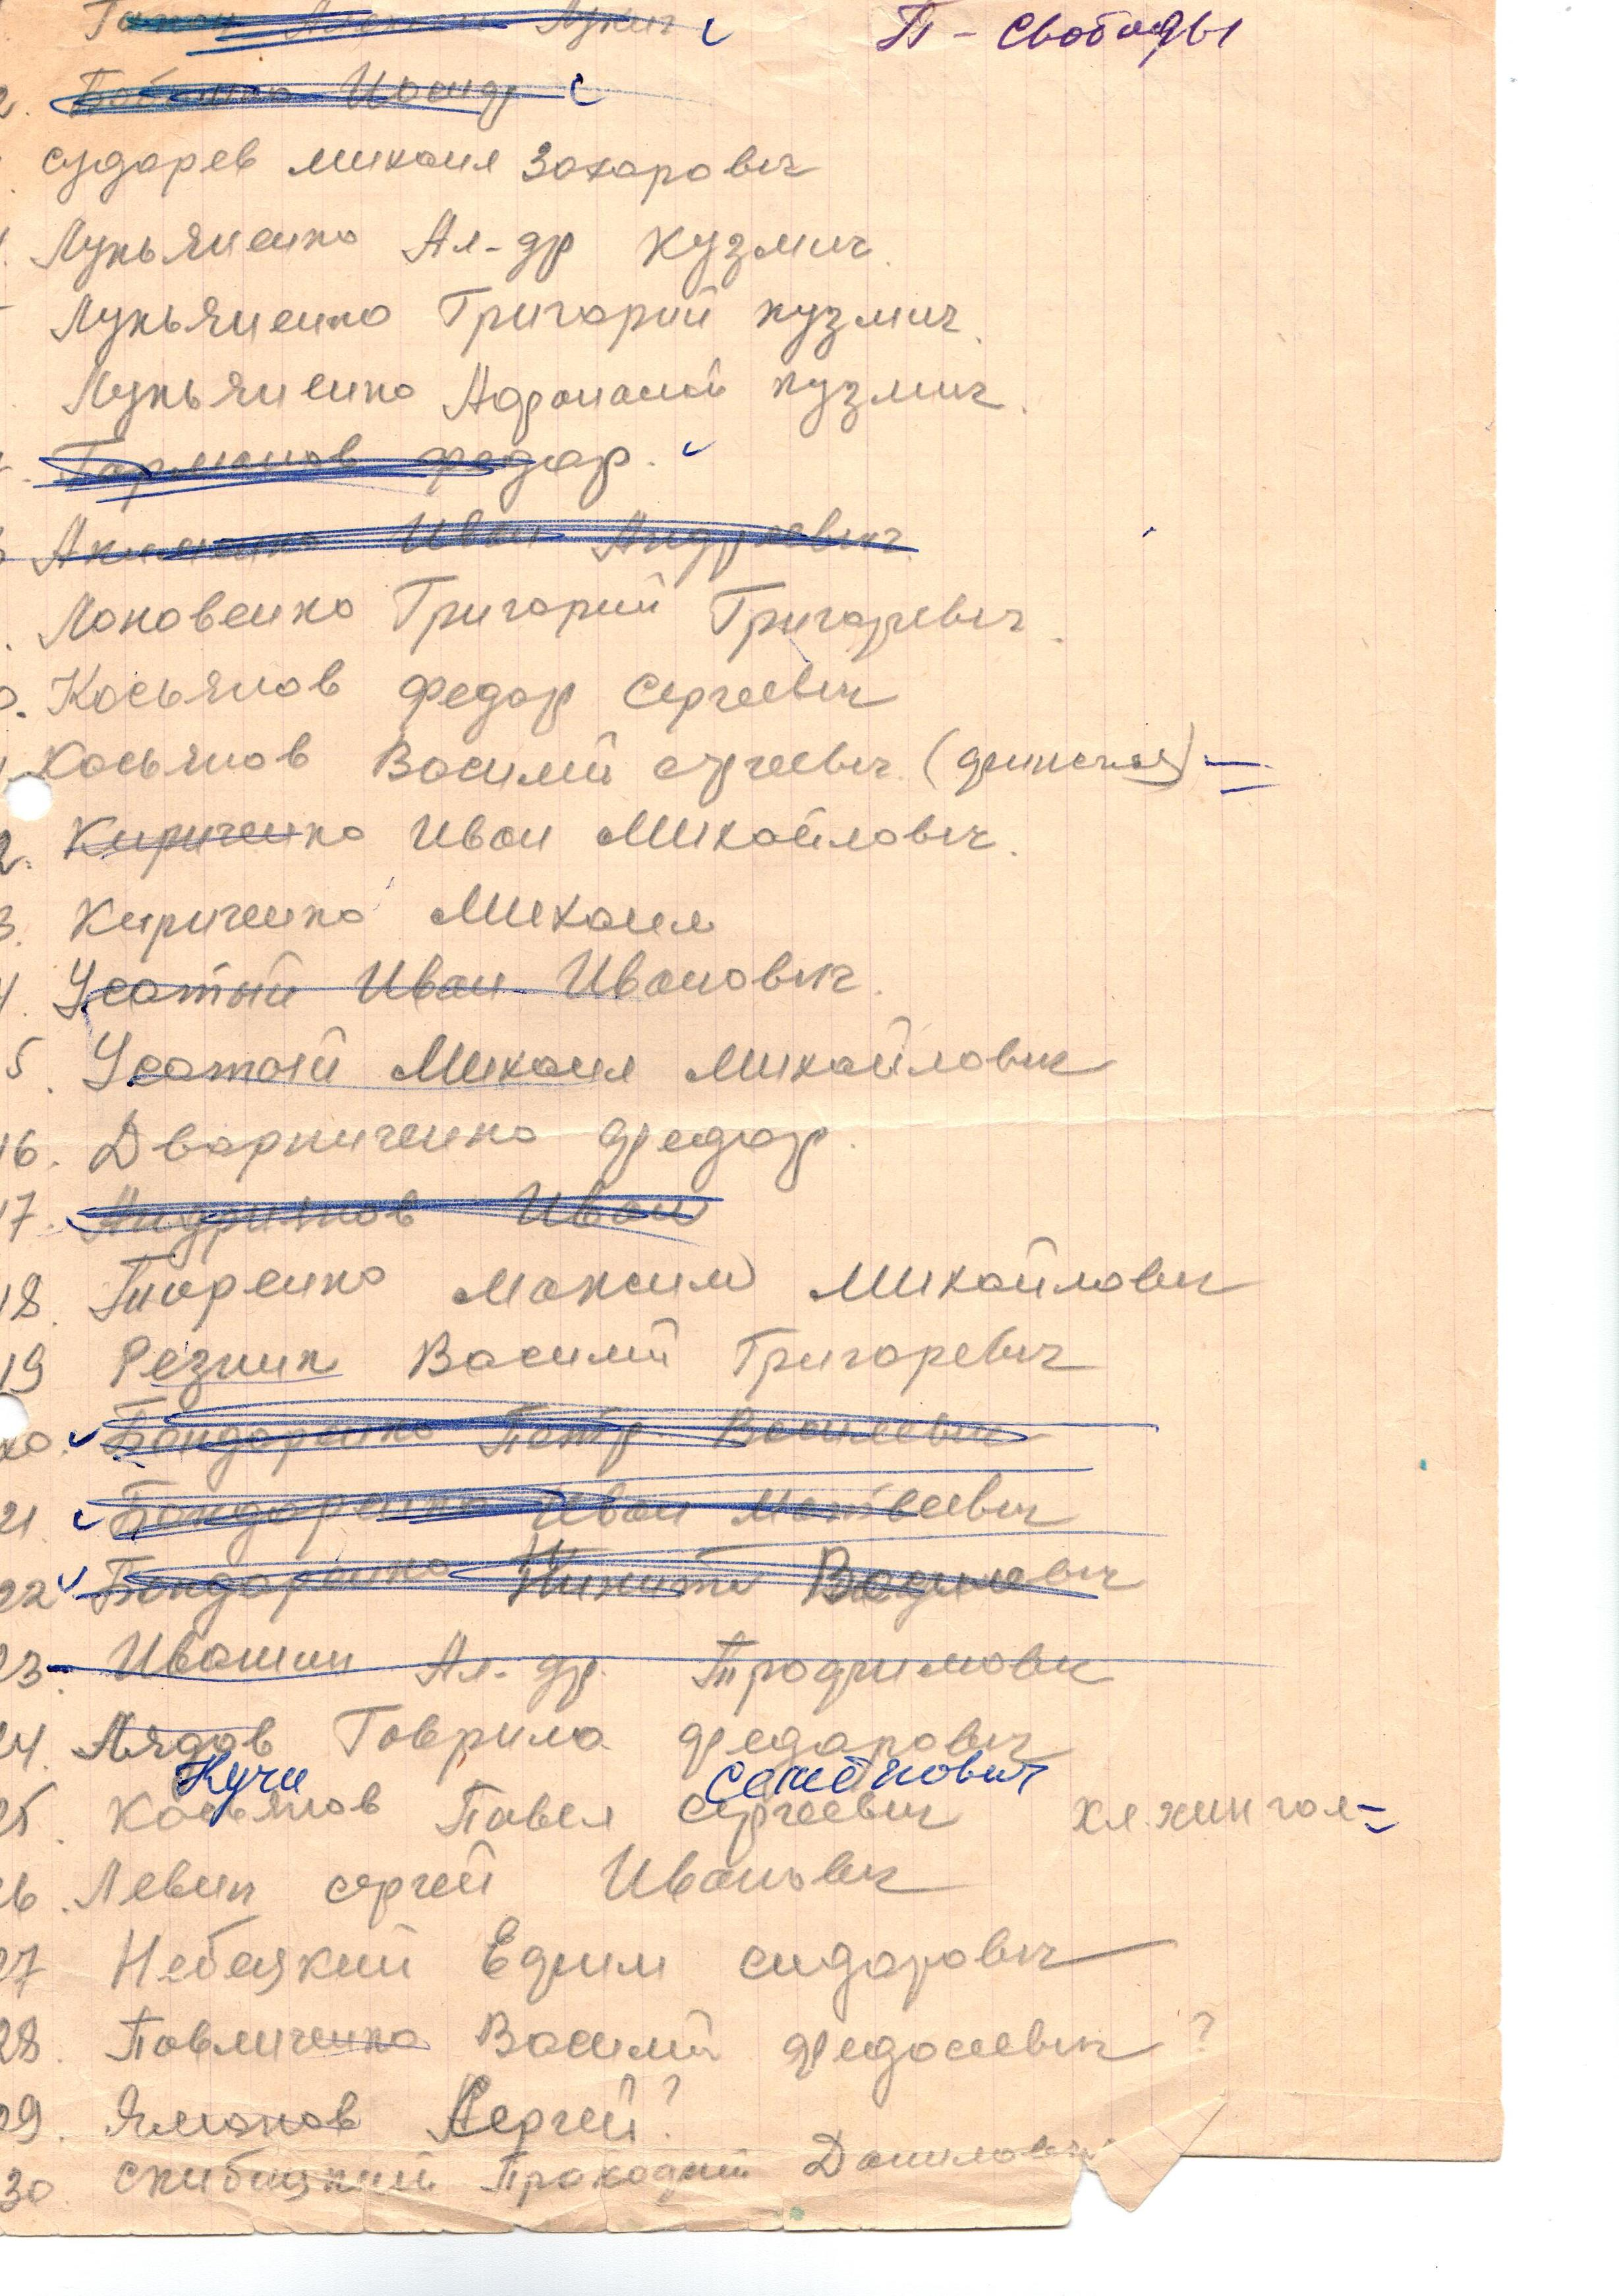 П - Свободы
2. Иосиф
Сударев Михаил Захарович
Лукьяненко Ал-др Кузмич.
Лукьяненко Григорий Кузмич.
Лукьяненко Афонасий Кузмич.
Федор.
Акименко Иван Андреевич
Локовенко Григорий Григоревич.
Косьянов Федор Сергеевич
Косьянов Василий Сергеевич (динская) =
2. Кириченко Иван Михайлович.
3. Кириченко Михаил
4. Усатый Иван Иванович.
5. Усатый Михаил Михайлович
16. Дворниченко Федор.
17. Иван
18. Титоренко Максим Михайлович
19 Резник Василий Григоревич
20. Бондоренко Петр Василевич
21. Бондоренко Иван Матвеевич
22 Бондоренко Никита
23. Ивашин Ал-др. Трофимович
24. Лядов Говрило Федорович
Кучи Семёнович
25. Косьянов Павел Сергеевич
26. Левин Сергей Иванович
27 Ефим Сидорович
28. Павличенко Василий Федосеевич ?
29. Сергей ?
30. Скибицкий Прокофий Данилович